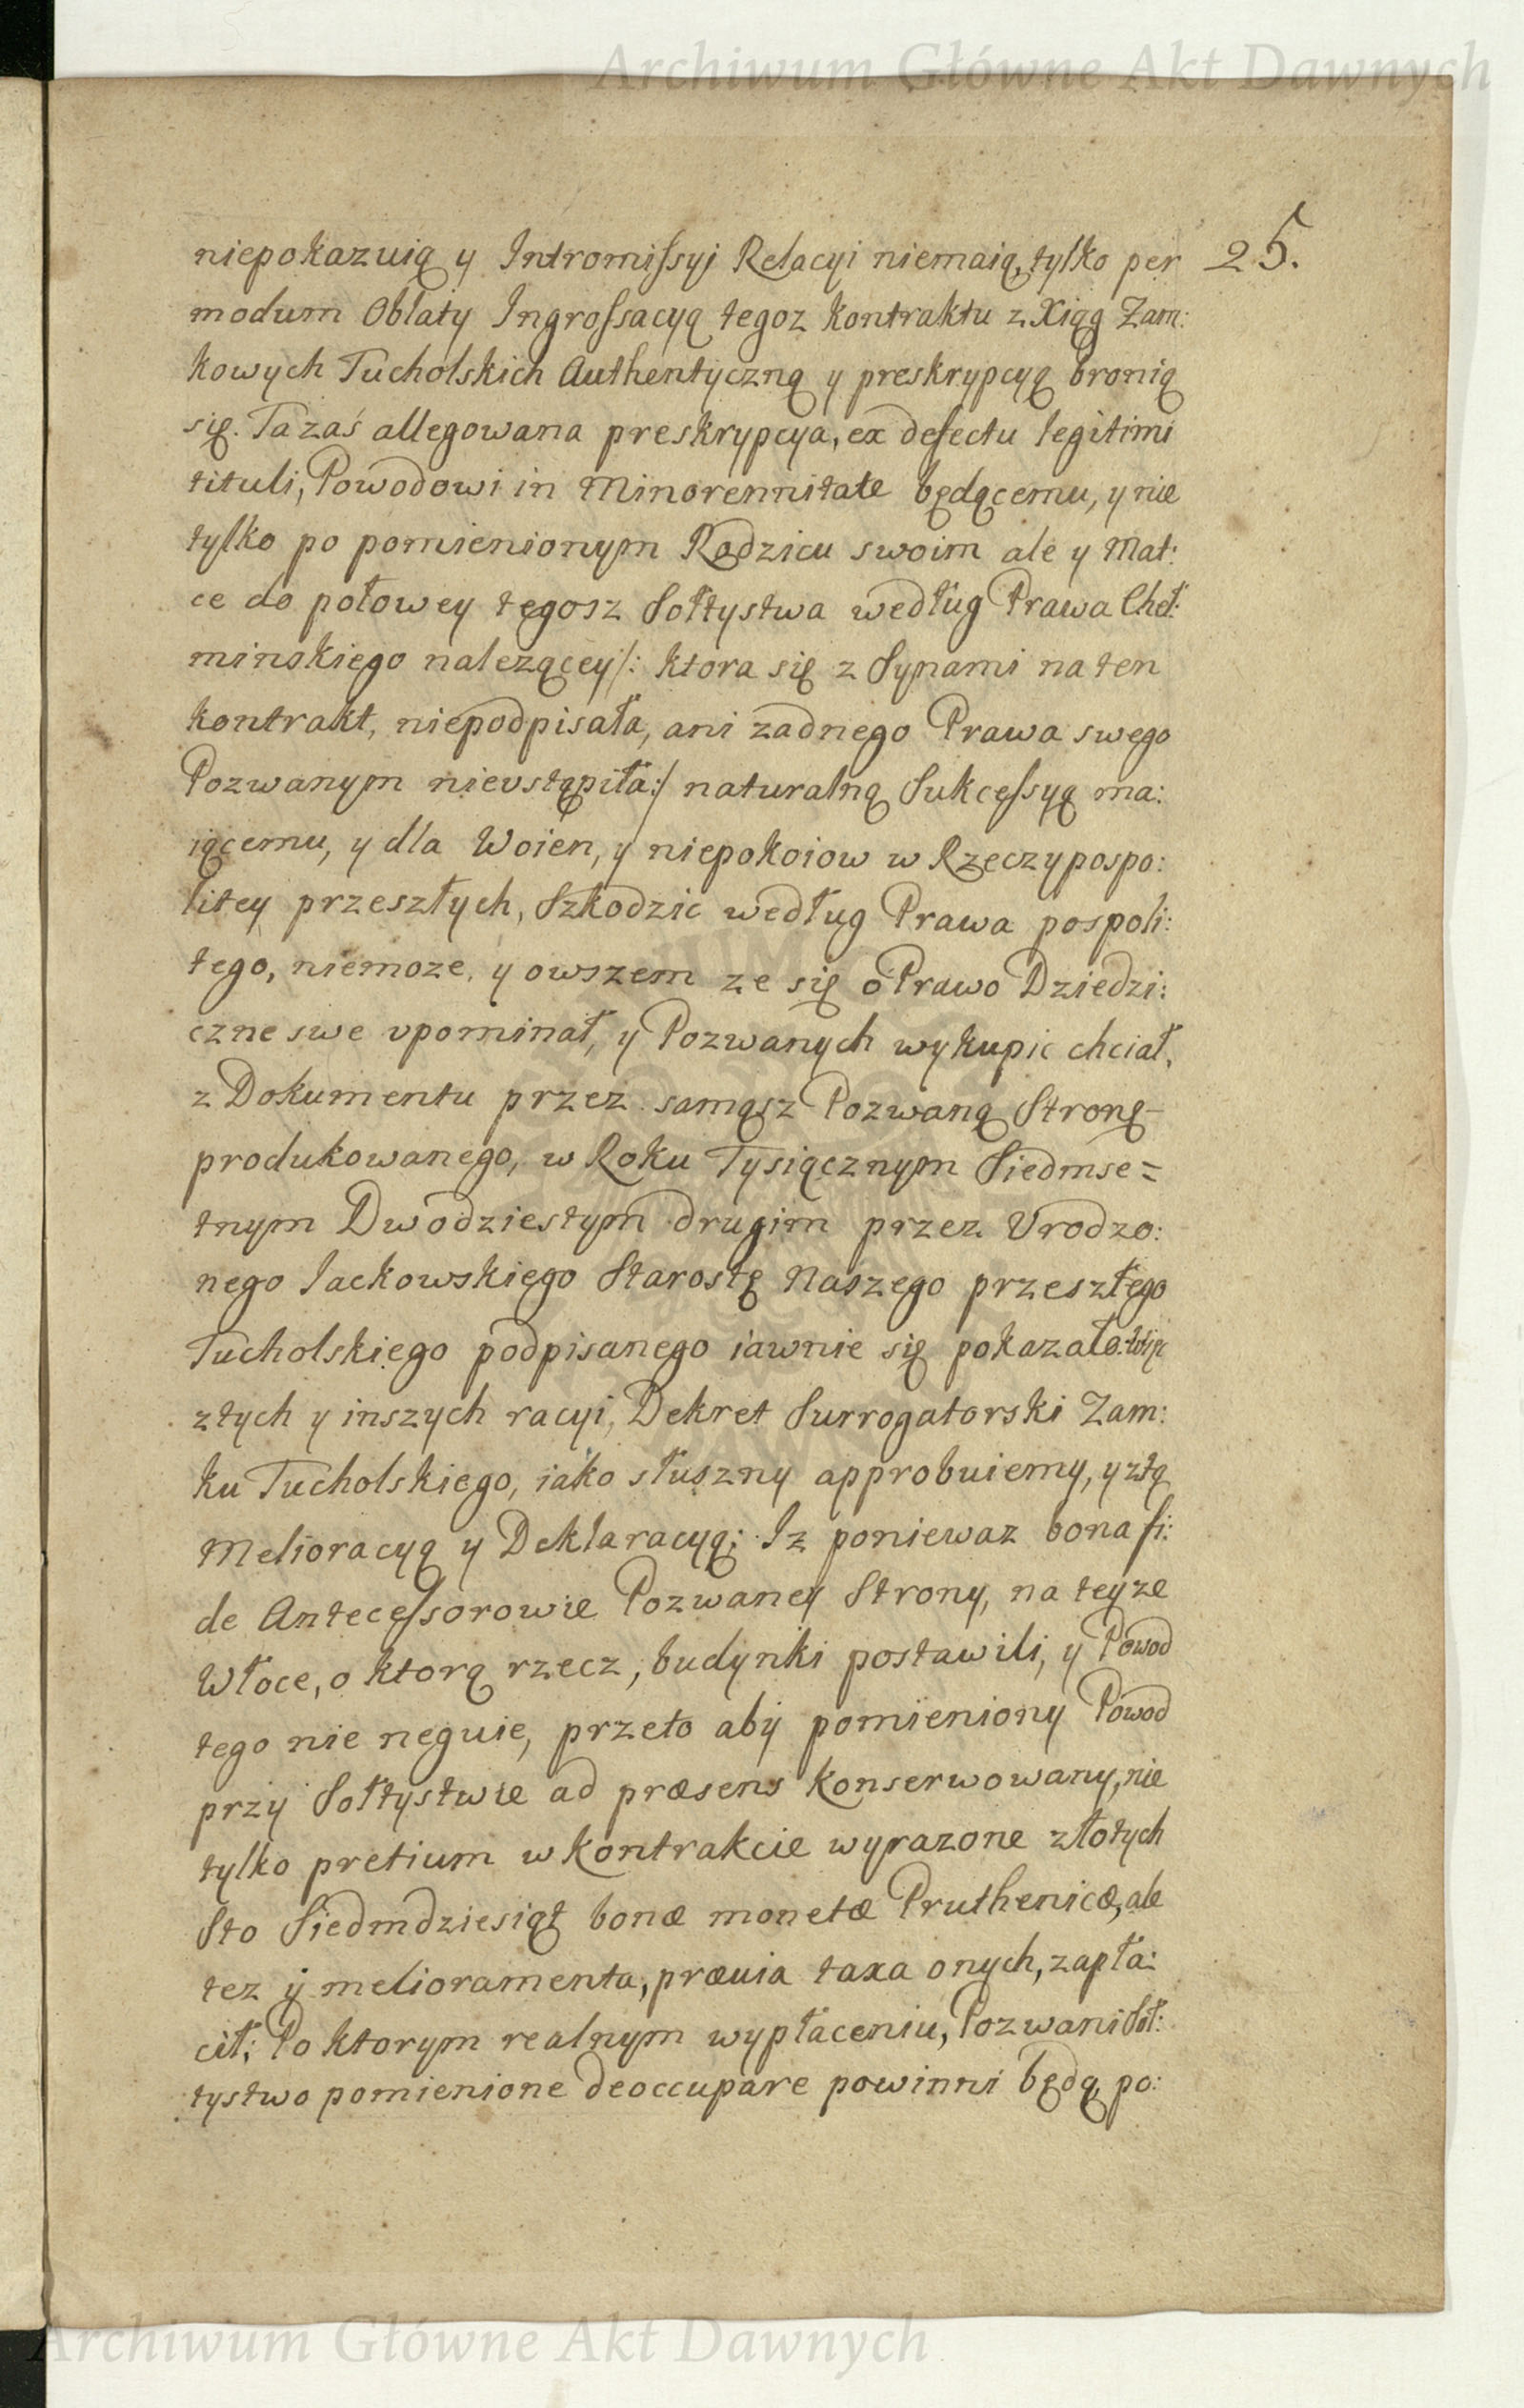 Archiwum Główne Akt Dawnych
25.
niepokazuią y Intromiſsyi Relacyi niemaią, tylko per
modum Oblaty Ingroſsacyą tegoz kontraktu z Xiąg Zam:
kowych Tucholskich Authentyczną y preskrypcyą bronią
się. Ta zaś allegowana preskrypcya, ex defectu legitimi
tituli, Powodowi in Minorennitate będącemu, y nie
tylko po pomienionym Rodzicu swoim ale y Mat:
ce do połowey tegosz Sołtystwa według Prawa Cheł:
minskiego nalezącey /: ktora się z Synami na ten
kontrakt, niepodpisała, ani zadnego Prawa swego
Pozwanym nievstąpiła :/ naturalną Sukceſsyą ma:
iącemu, y dla Woien, y niepokoiow w Rzeczypospo:
litey przeszłych, Szkodzic według Prawa pospoli:
tego, niemoze, y owszem ze się o Prawo Dziedzi:
czne swe vpominał, y Pozwanych wykupic chciał,
z Dokumentu przez samąsz Pozwaną Stronę
produkowanego, w Roku Tysiącznym Siedmse=
tnym Dwodziestym drugim przez Vrodzo:
nego Jackowskiego Starostę Naszego przeszłego
Tucholskiego podpisanego iawnie się pokazało. Więc
z tych y inszych racyi, Dekret Surrogatorski Zam:
ku Tucholskiego, iako słuszny approbuiemy, y z tą
Melioracyą y Deklaracyą; Iz poniewaz bona fi:
de Anteceſsorowie Pozwaney Strony, na teyze
Włoce, o ktorą rzecz, budynki postawili, y Powod
tego nie neguie, przeto aby pomieniony Powod
przy Sołtystwie ad præsens konserwowany, nie
tylko pretium w kontrakcie wyrazone złotych
Sto Siedmdziesiąt bonæ monetæ Pruthenicæ, ale
tez y melioramenta, præuia taxa onych, zapła:
cił; Po ktorym realnym wypłaceniu, Pozwani Soł:
tystwo pomienione deoccupare powinni będą, po:
Archiwum Główne Akt Dawnych